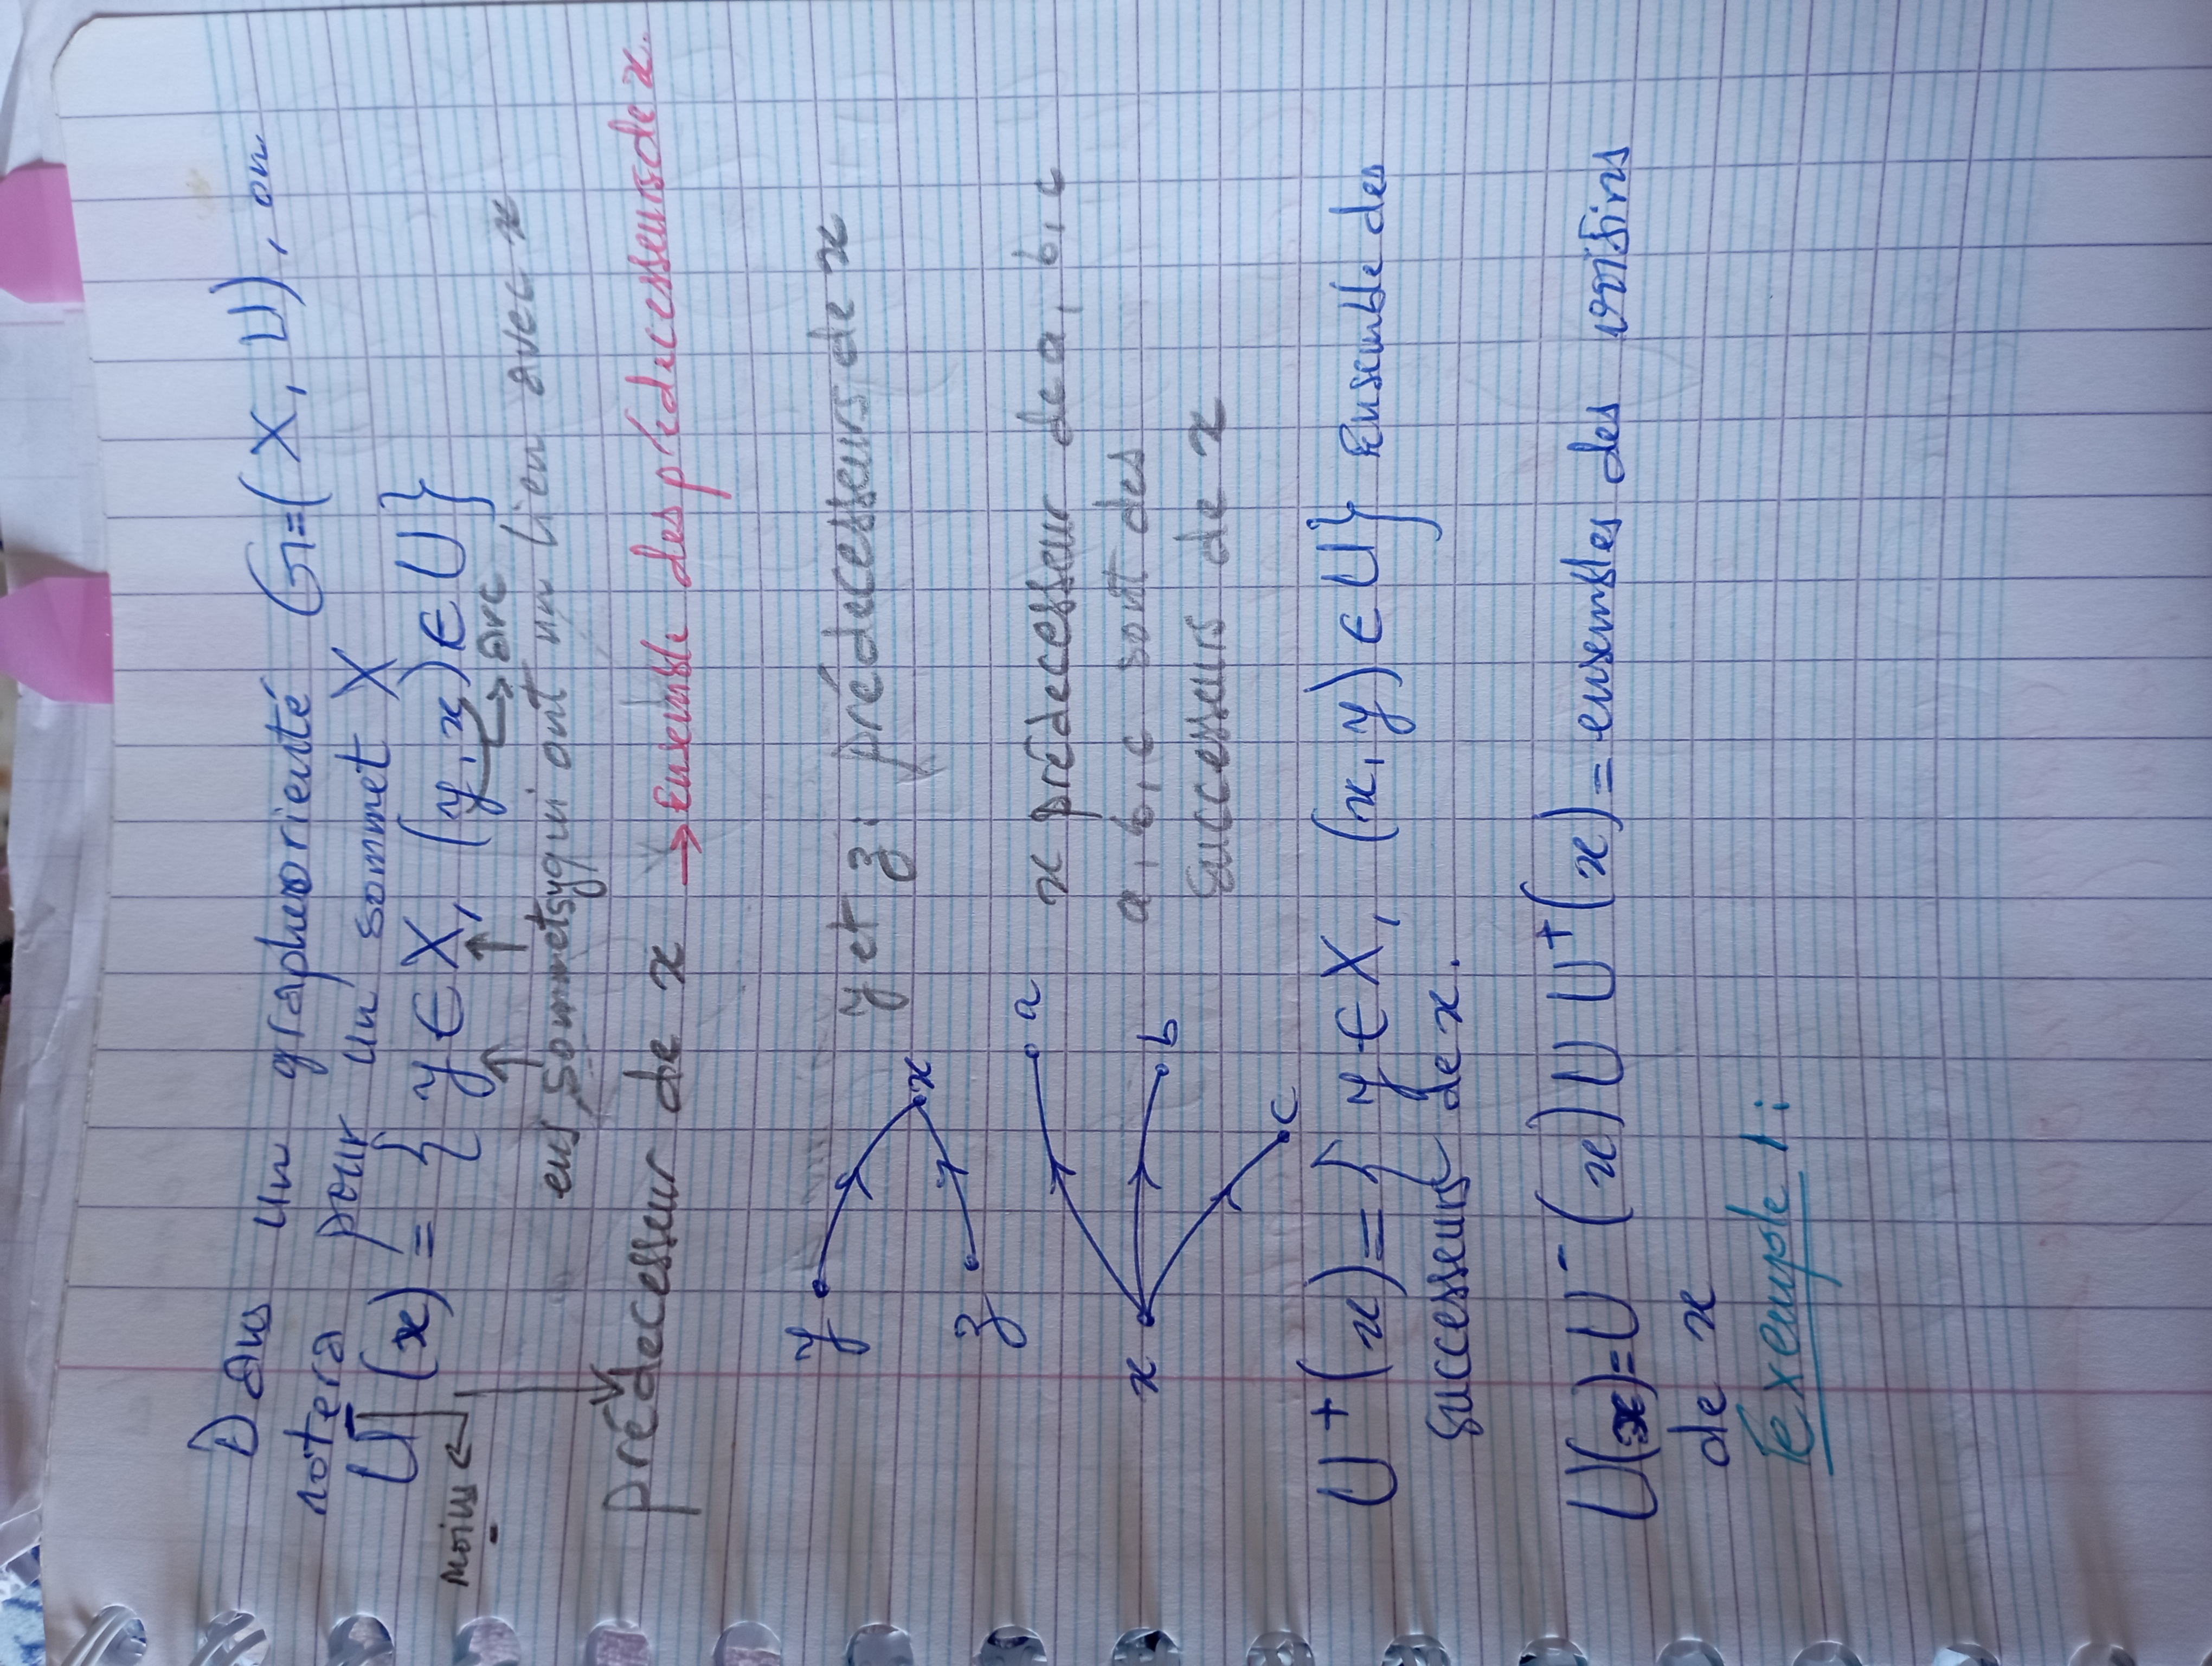 Dans un graphe orienté G=(X, U), on
notera pour un sommet X
U⁻(x) = { y ∈ X, (y, x) ∈ U}
moins
arc
ens, sommets y qui ont un lien avec x
prédecesseur de x → Ensemble des prédecesseurs de x.
y
z
x
y et z : prédecesseurs de x
x
a
b
c
x prédecesseur de a, b, c
a, b, c sont des
successeurs de x
U⁺(x) = { y ∈ X, (x, y) ∈ U} Ensemble des
successeurs de x.
U(x) = U⁻(x) U U⁺(x) = ensembles des voisins
de x
Exemple 1: